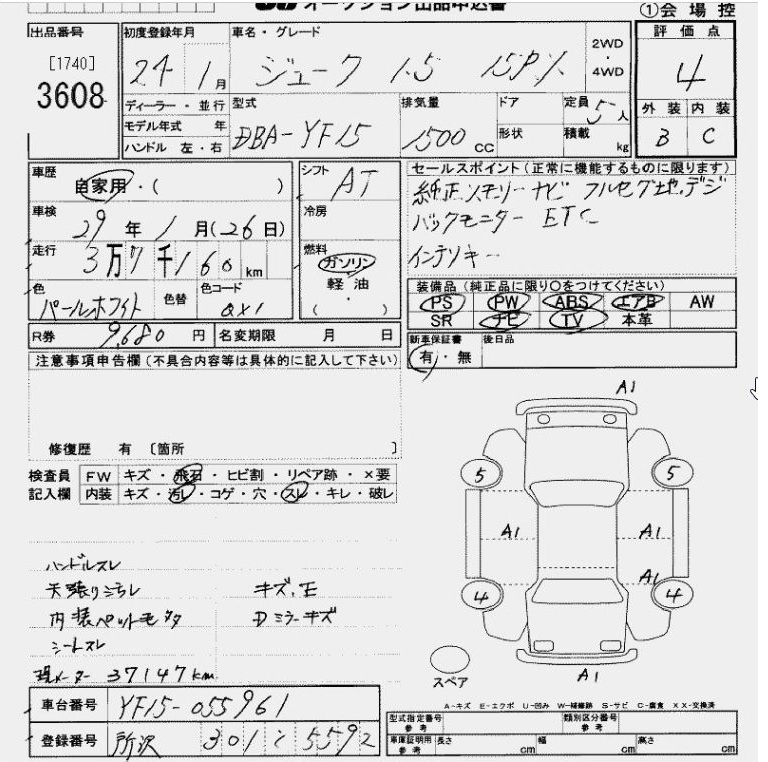 オークション出品申込書
①会場控
出品番号
[1740]
3608
初度登録年月
24 1月
車名・グレード
ジューク 1.5 15RX
2WD・4WD
評価点
4
外装 内装
B C
ディーラー・並行
モデル年式 年
ハンドル 左・右
型式
DBA-YF15
排気量
1500cc
ドア
形状
定員 5人
積載 kg
車歴
自家用・( )
車検
29年1月(26日)
走行
3万7千160km
色
パールホワイト
色替
色コード
QX1
シフト
AT
冷房
燃料
ガソリン
軽油
( ・ )
セールスポイント(正常に機能するものに限ります)
純正メモリーナビ フルセグ地デジ
バックモニター ETC
インテリキー
装備品(純正品に限り○をつけてください)
PS PW ABS エアB AW
SR ナビ TV 本革
R券 9,680円
名変期限 月 日
新車保証書 有・無
後日品
注意事項申告欄(不具合内容等は具体的に記入して下さい)
修復歴 有 〔箇所 〕
検査員記入欄
FW キズ・飛石・ヒビ割・リペア跡・×要
内装 キズ・汚レ・コゲ・穴・スレ・キレ・破レ
ハンドルスレ
天張りヨゴレ キズ.E
内装ペットモタ Dミラーキズ
シートスレ
現メーター 37147km
A1
5 5
A1 A1
A1
4 4
スペア
A1
A-キズ E-エクボ U-凹み W-補修跡 S-サビ C-腐食 XX-交換済
車台番号 YF15-055961
登録番号 所沢 301 と 5592
型式指定番号 参考
類別区分番号 参考
車庫証明用 参考
長さ cm 幅 cm 高さ cm